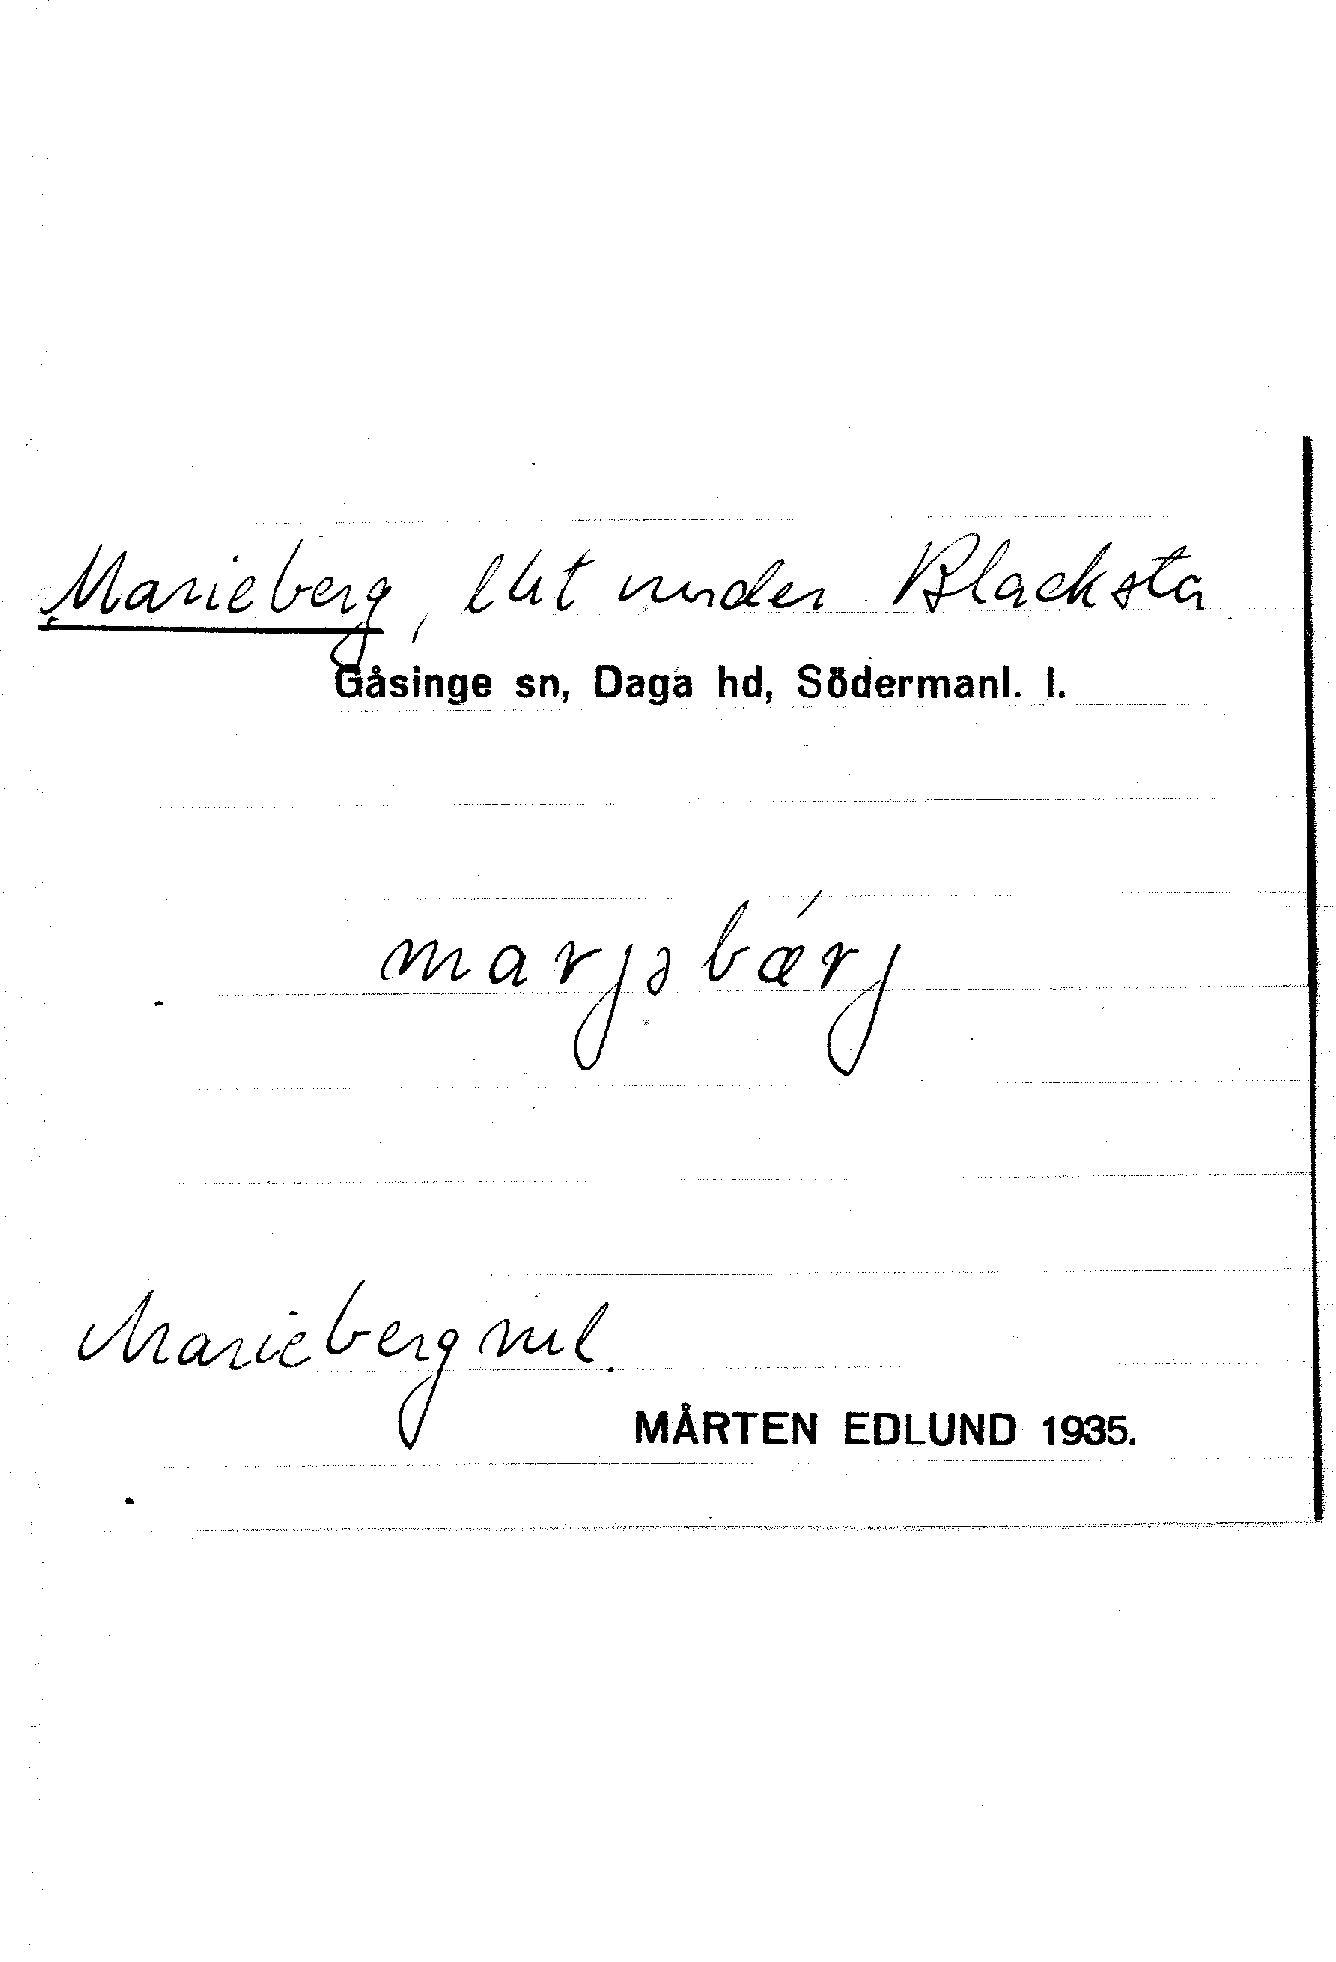 Marieberg, lht under Blacksta
Gåsinge sn, Daga hd, Södermanl. l.
marjəbǽrj
Marieberg ml.
MÅRTEN EDLUND 1935.